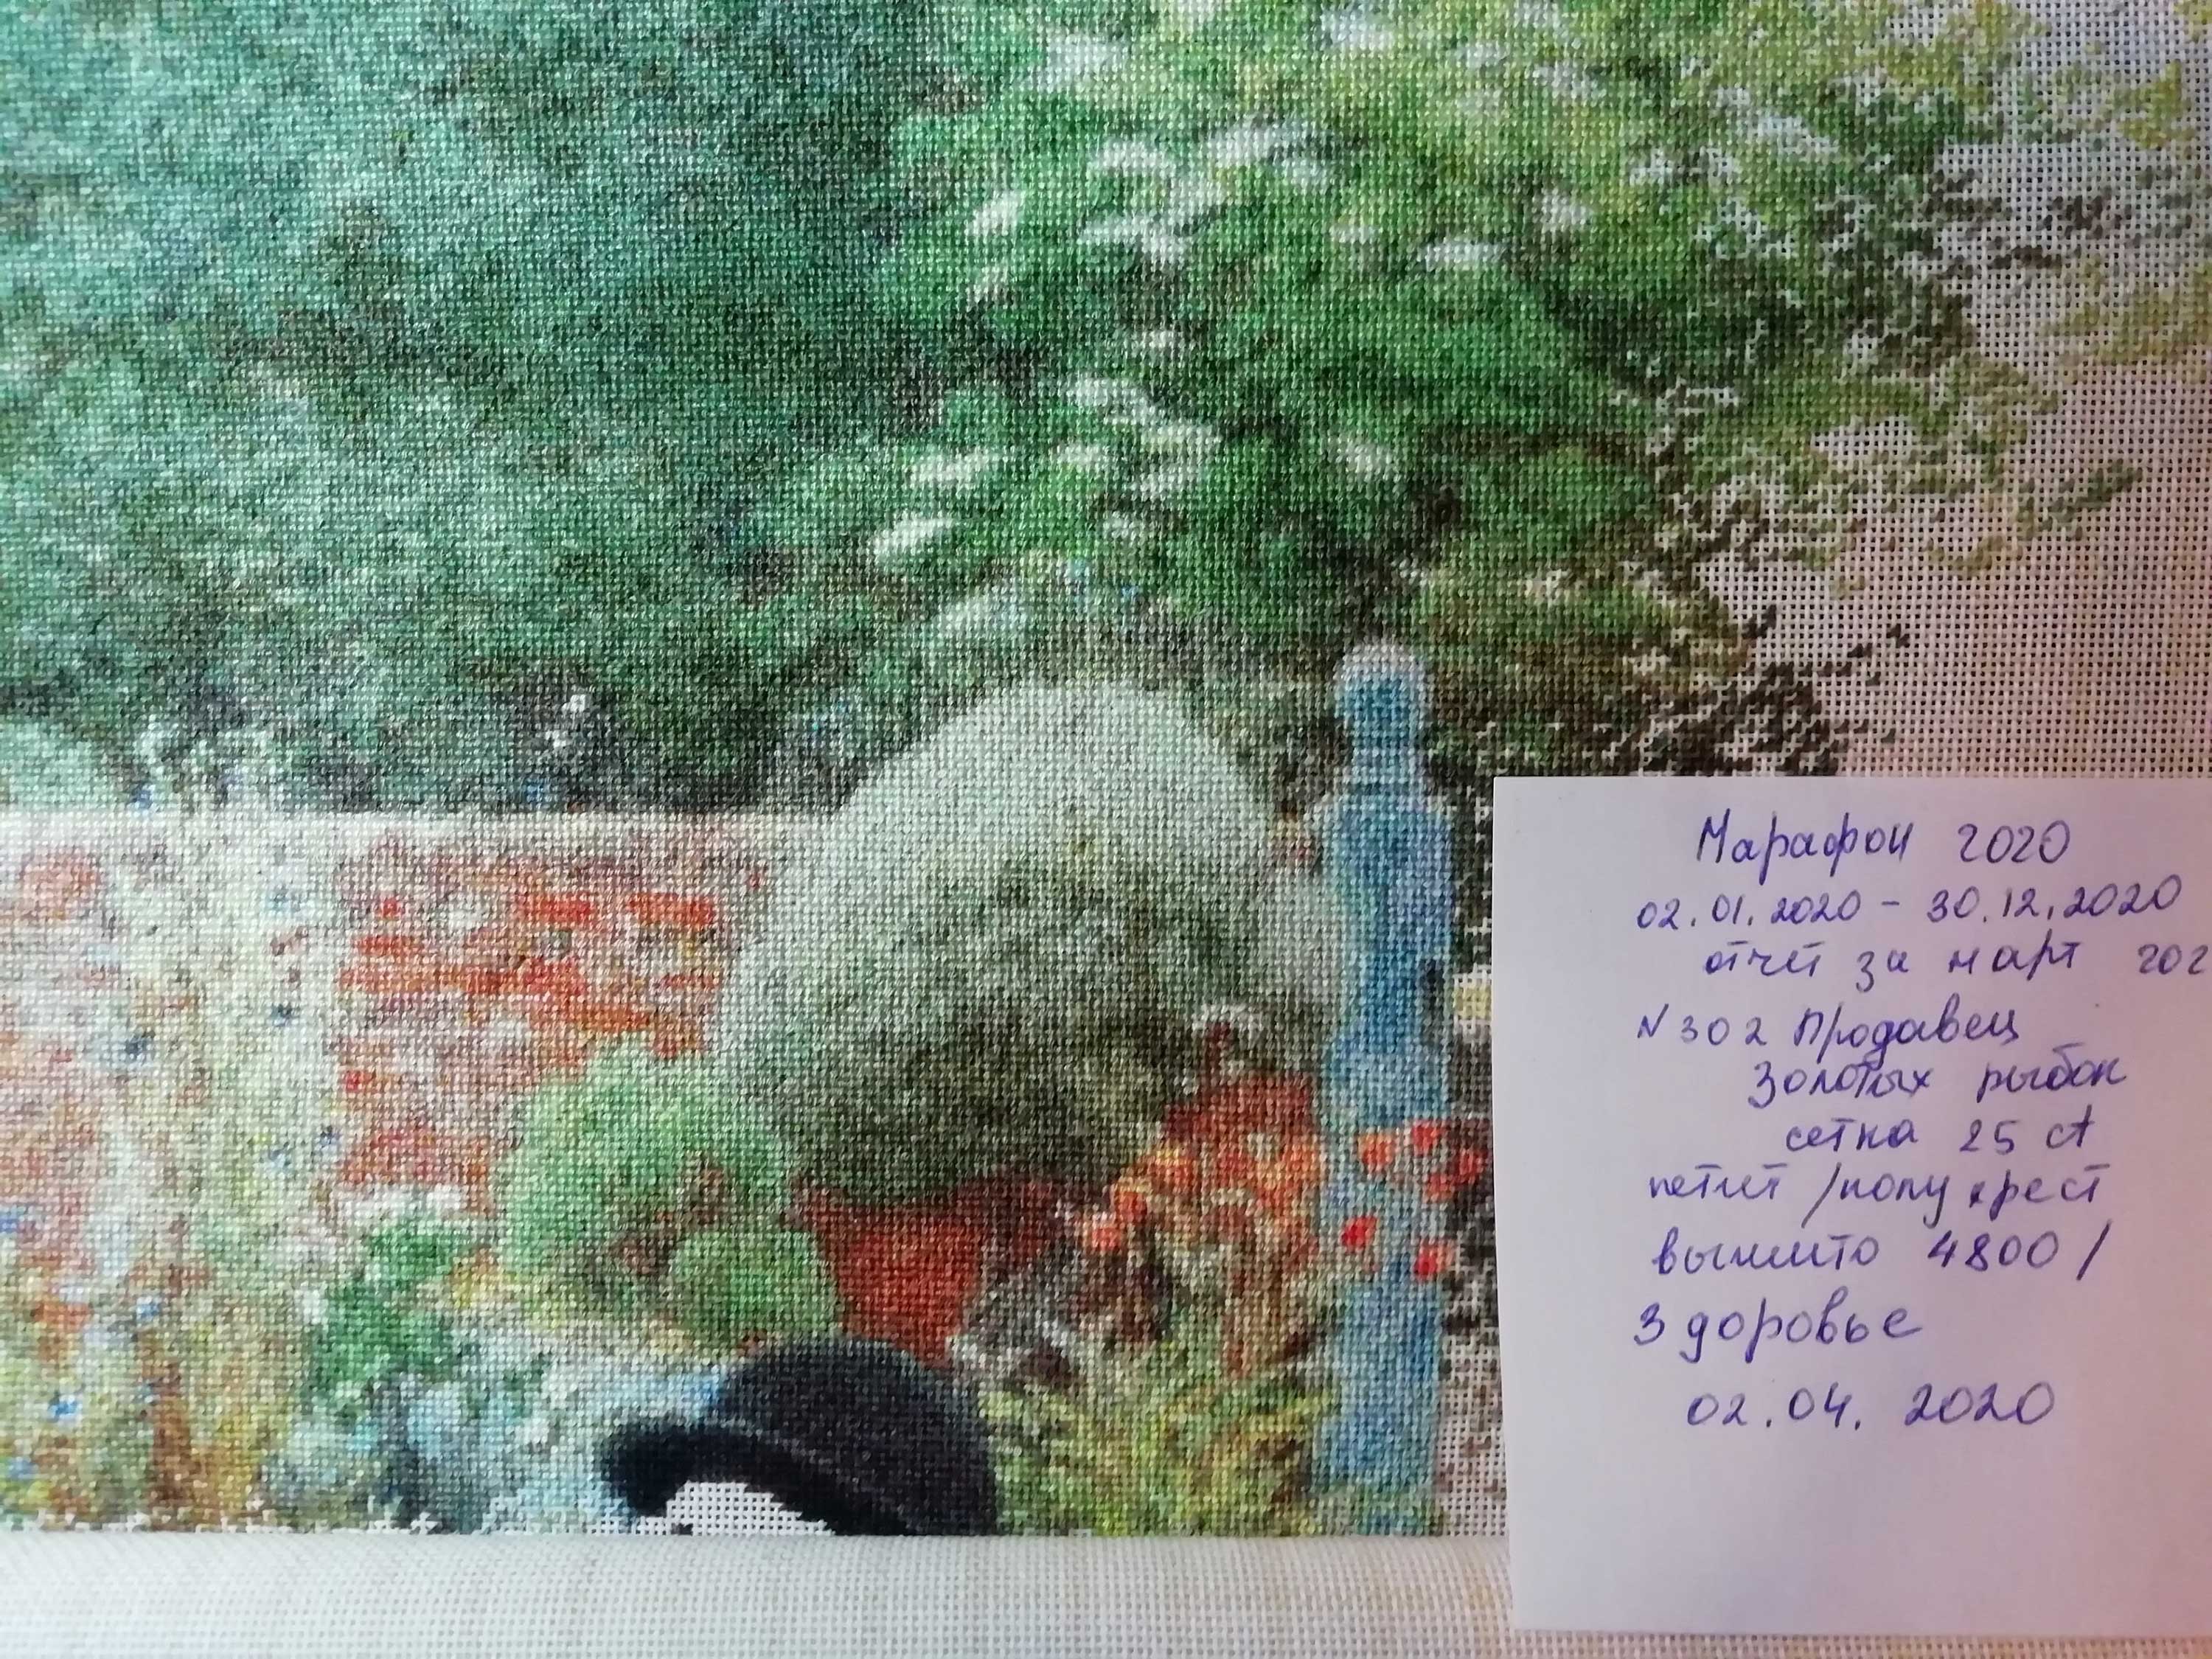 Марафон 2020
02.01.2020 - 30.12.2020
отчёт за март 202
N 302 Продавец
Золотых рыбок
сетка 25 ct
петит /полукрест
вышито 4800 /
Здоровье
02.04. 2020